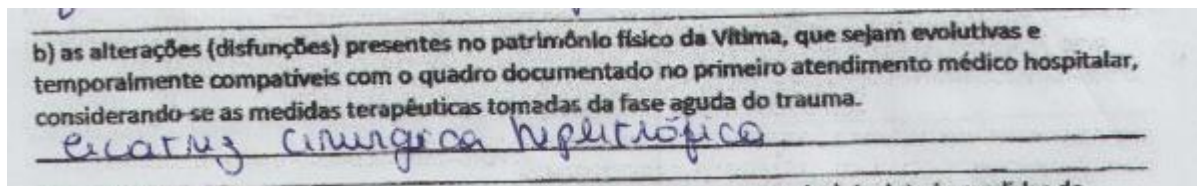 b) as alterações (disfunções) presentes no patrimônio físico da Vítima, que sejam evolutivas e
temporalmente compatíveis com o quadro documentado no primeiro atendimento médico hospitalar,
considerando-se as medidas terapêuticas tomadas da fase aguda do trauma.
cicatriz cirurgica hipertrófica